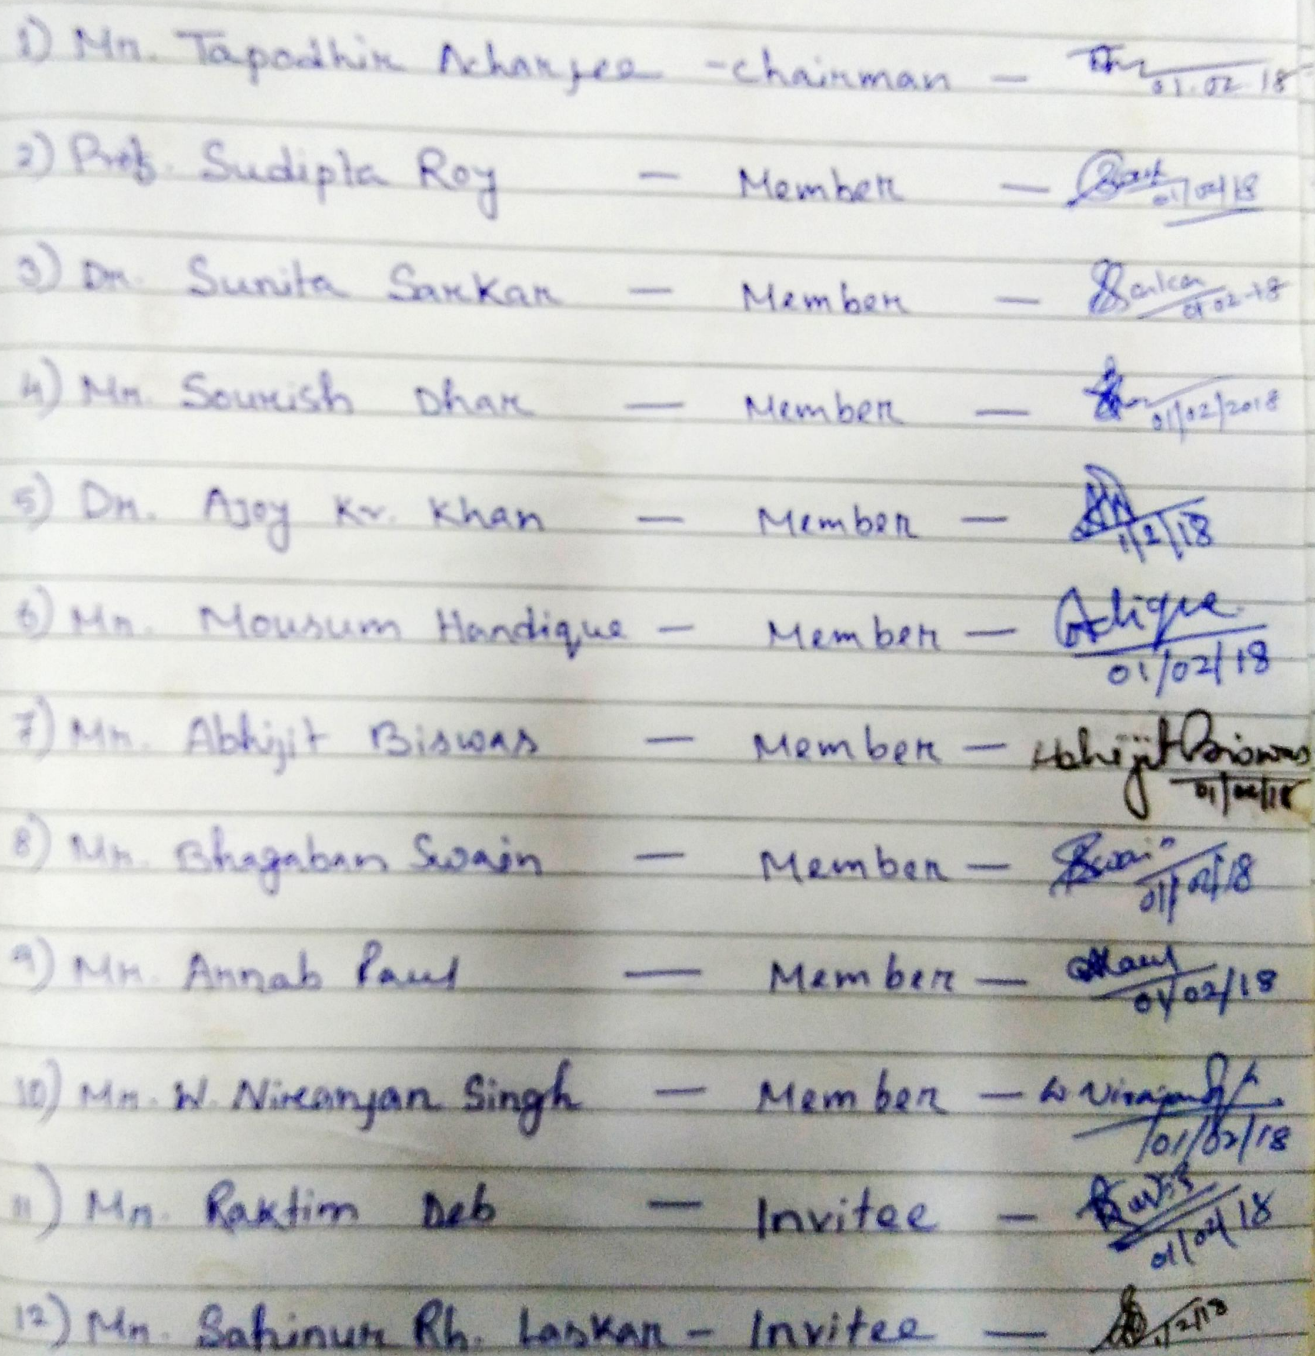 1) Mr. Tapodhir Acharjee - chairman - 01.02.18
2) Prof. Sudipta Roy - Member - 01/02/18
3) Dr. Sunita Sarkar - Member - Sarkar 01.02.18
4) Mr. Sourish Dhar - Member - 01/02/2018
5) Dr. Ajoy Kr. Khan - Member - 1/2/18
6) Mr. Mousum Handique - Member - 01/02/18
7) Mr. Abhijit Biswas - Member - Abhijit Biswas 01/02/18
8) Mr. Bhagaban Swain - Member - Swain 01/02/18
9) Mr. Arnab Paul - Member - Paul 01/02/18
10) Mr. W. Niranjan Singh - Member - W. Niranjan 01/02/18
11) Mr. Raktim Deb - Invitee - 01/02/18
12) Mr. Sahinur Rh. Laskar - Invitee - 1/2/18